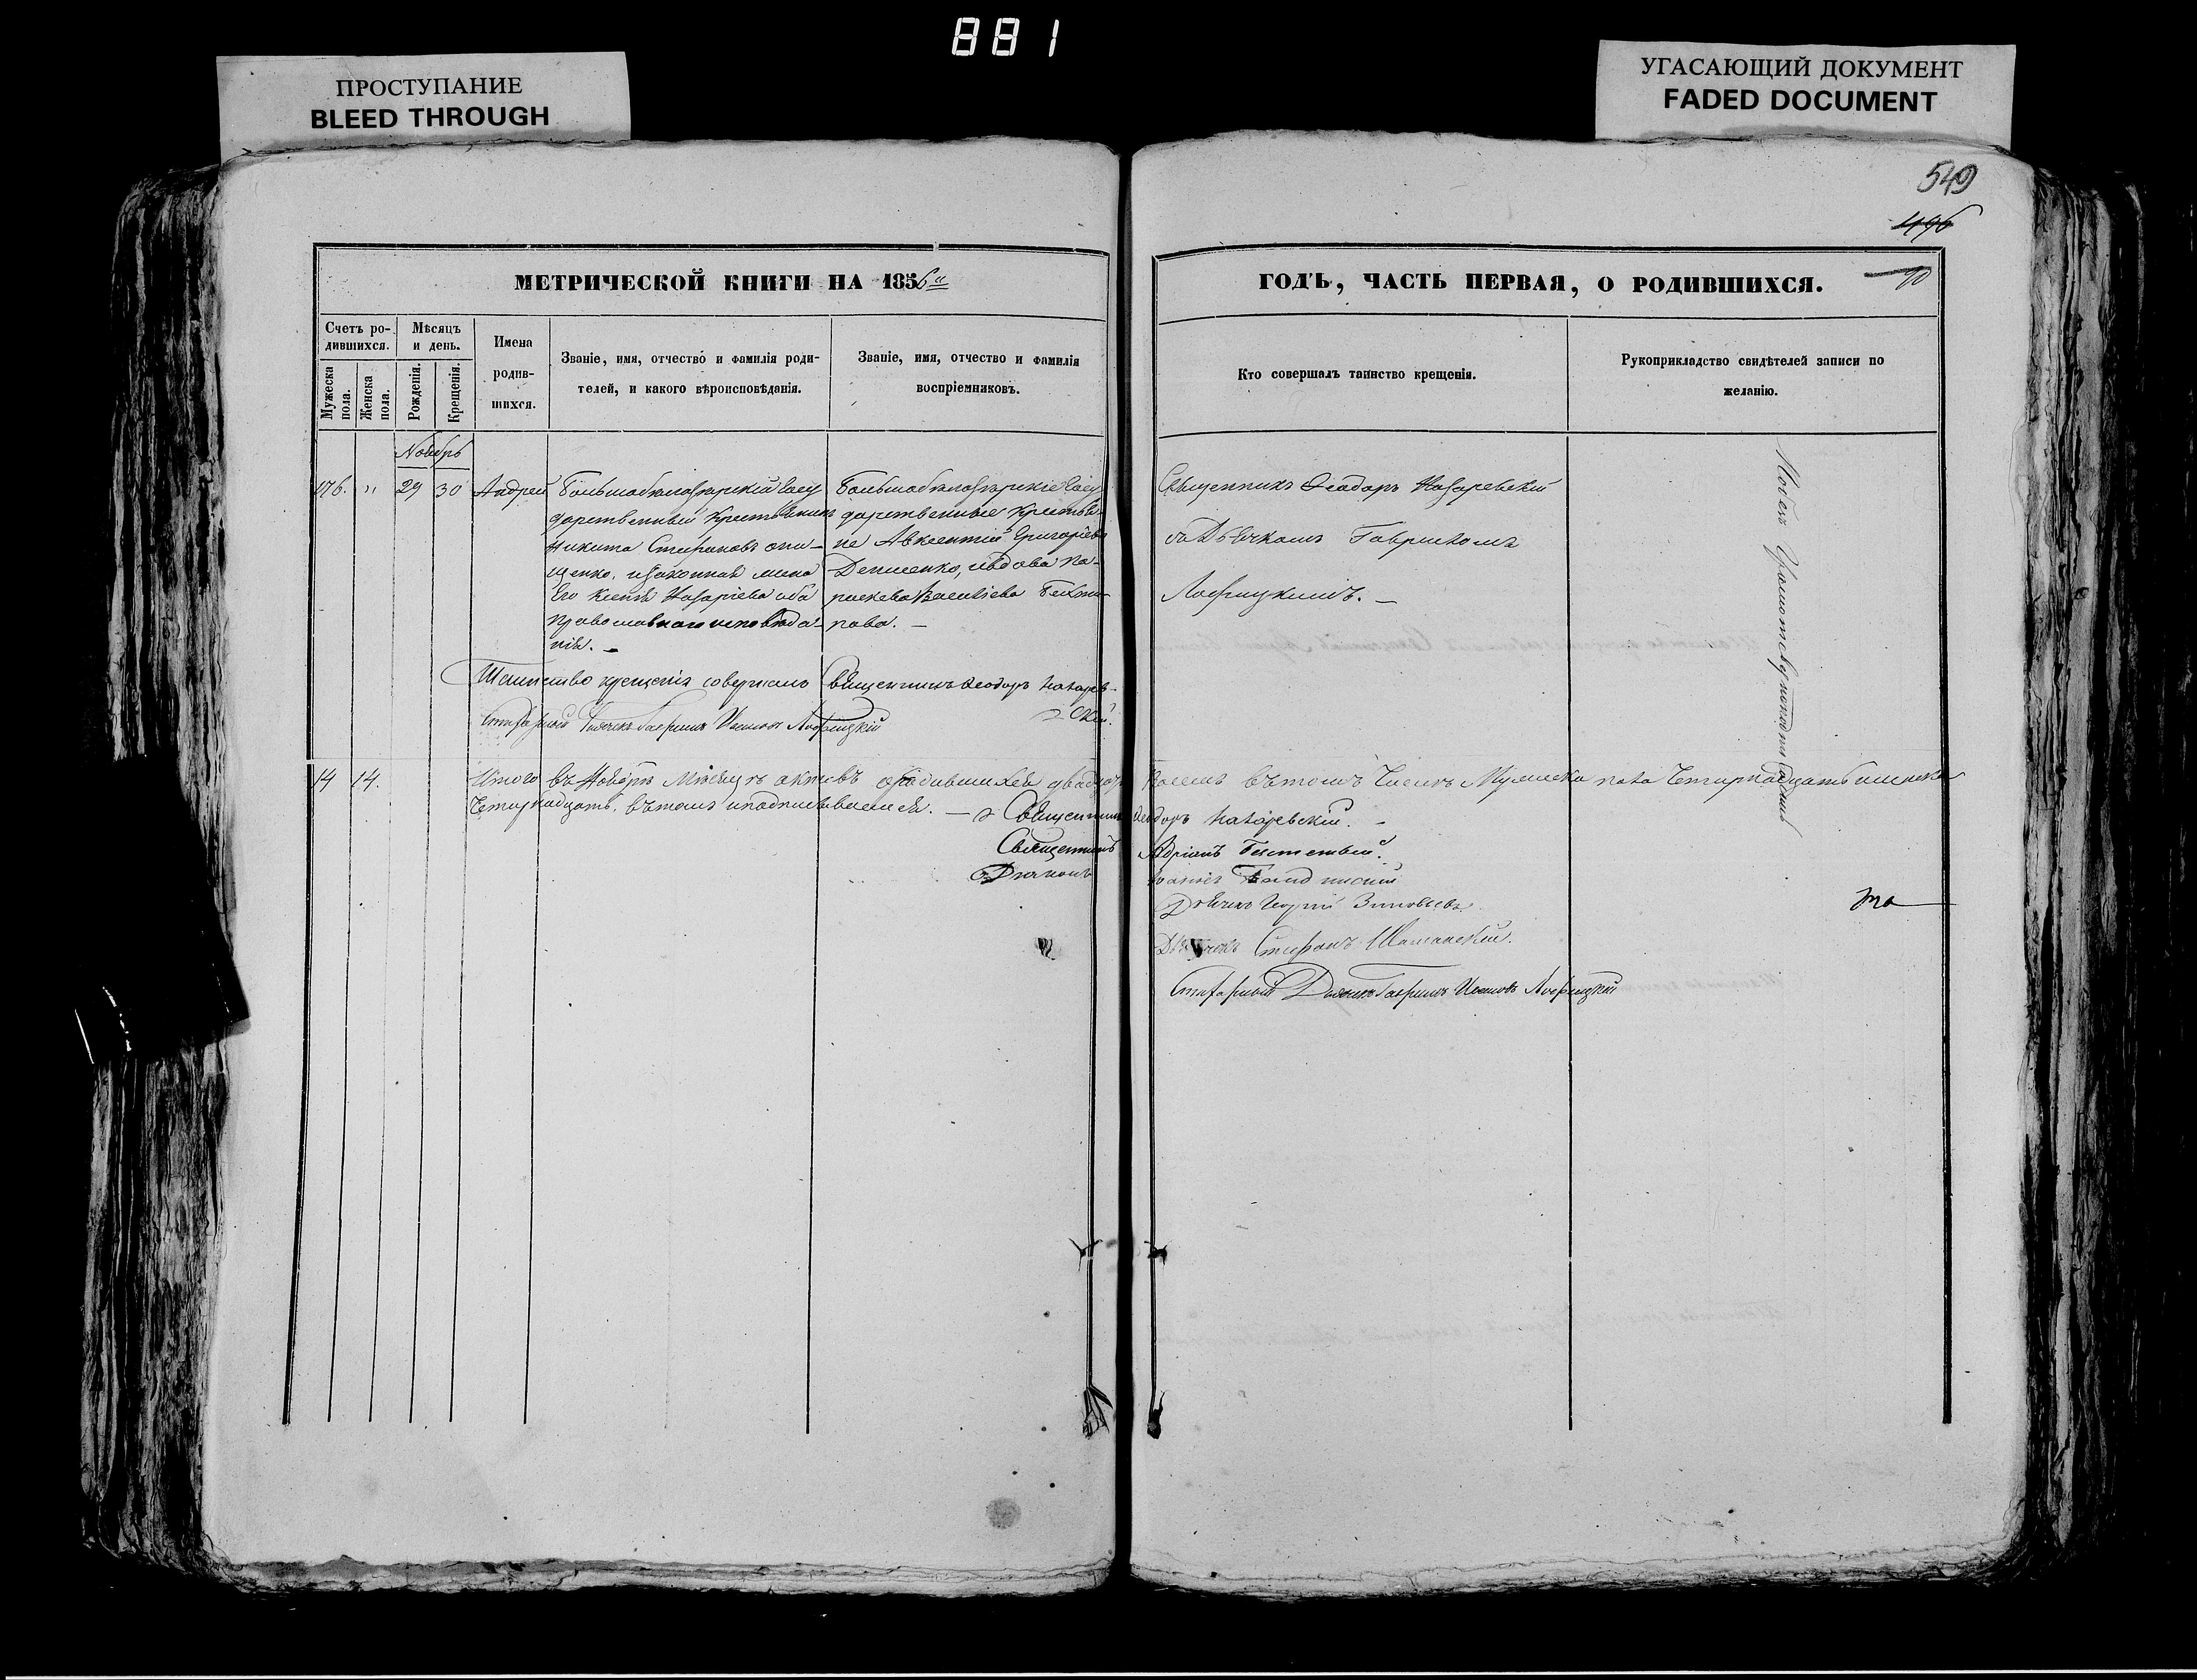 881
ПРОСТУПАНИЕ
BLEED THROUGH
УГАСАЮЩИЙ ДОКУМЕНТ
FADED DOCUMENT
549
496
90
МЕТРИЧЕСКОЙ КНИГИ НА 1856й
ГОДЪ, ЧАСТЬ ПЕРВАЯ, О РОДИВШИХСЯ.
Счетъ ро-
дившихся.
Мужеска
пола.
Женска
пола.
Мѣсяцъ
и день.
Рожденія.
Крещенія.
Имена
родив-
шихся.
Званіе, имя, отчество и фамилія роди-
телей, и какого вѣроисповѣданія.
Званіе, имя, отчество и фамилія
воспріемниковъ.
Кто совершалъ таинство крещенія.
Рукоприкладство свидѣтелей записи по
желанію.
Ноябрь
176. " 29 30 Андрей
Большобѣлозѣрскій Госу
дарственный Крестьянинъ
Никита Стефановъ
и законная жена
его Ксенія Назаріева оба
православнаго исповѣда-
нія. —
Большобѣлозѣрскіе Госу
дарственные Крестья-
не Авксентій Григоріевъ
Денисенко, и вдова Па-
раскева Василіева
Священникъ Феодоръ Назаревскій
съ Дьячкомъ Гавриломъ
Лофицкимъ. —
Таинство крещенія совершалъ Священникъ Феодоръ Назарев-
скій.
Стихарный Дьячекъ Гаврилъ Ивановъ Лофицкій
14 14. Итого въ Ноябрѣ Мѣсяцѣ актовъ о родившихся двадцать восемь въ томъ числѣ Мужеска пола Четырнадцать и женска
Четырнадцать, въ томъ и подписываемся. — Священникъ Феодоръ Назаревскій. -
Священникъ Адріанъ
Дьяконъ Іоаннъ
Дьячекъ Георгій Зиновьевъ.
Дьячекъ Стефанъ
Стихарный Дьячекъ Гаврилъ Ивановъ Лофицкій